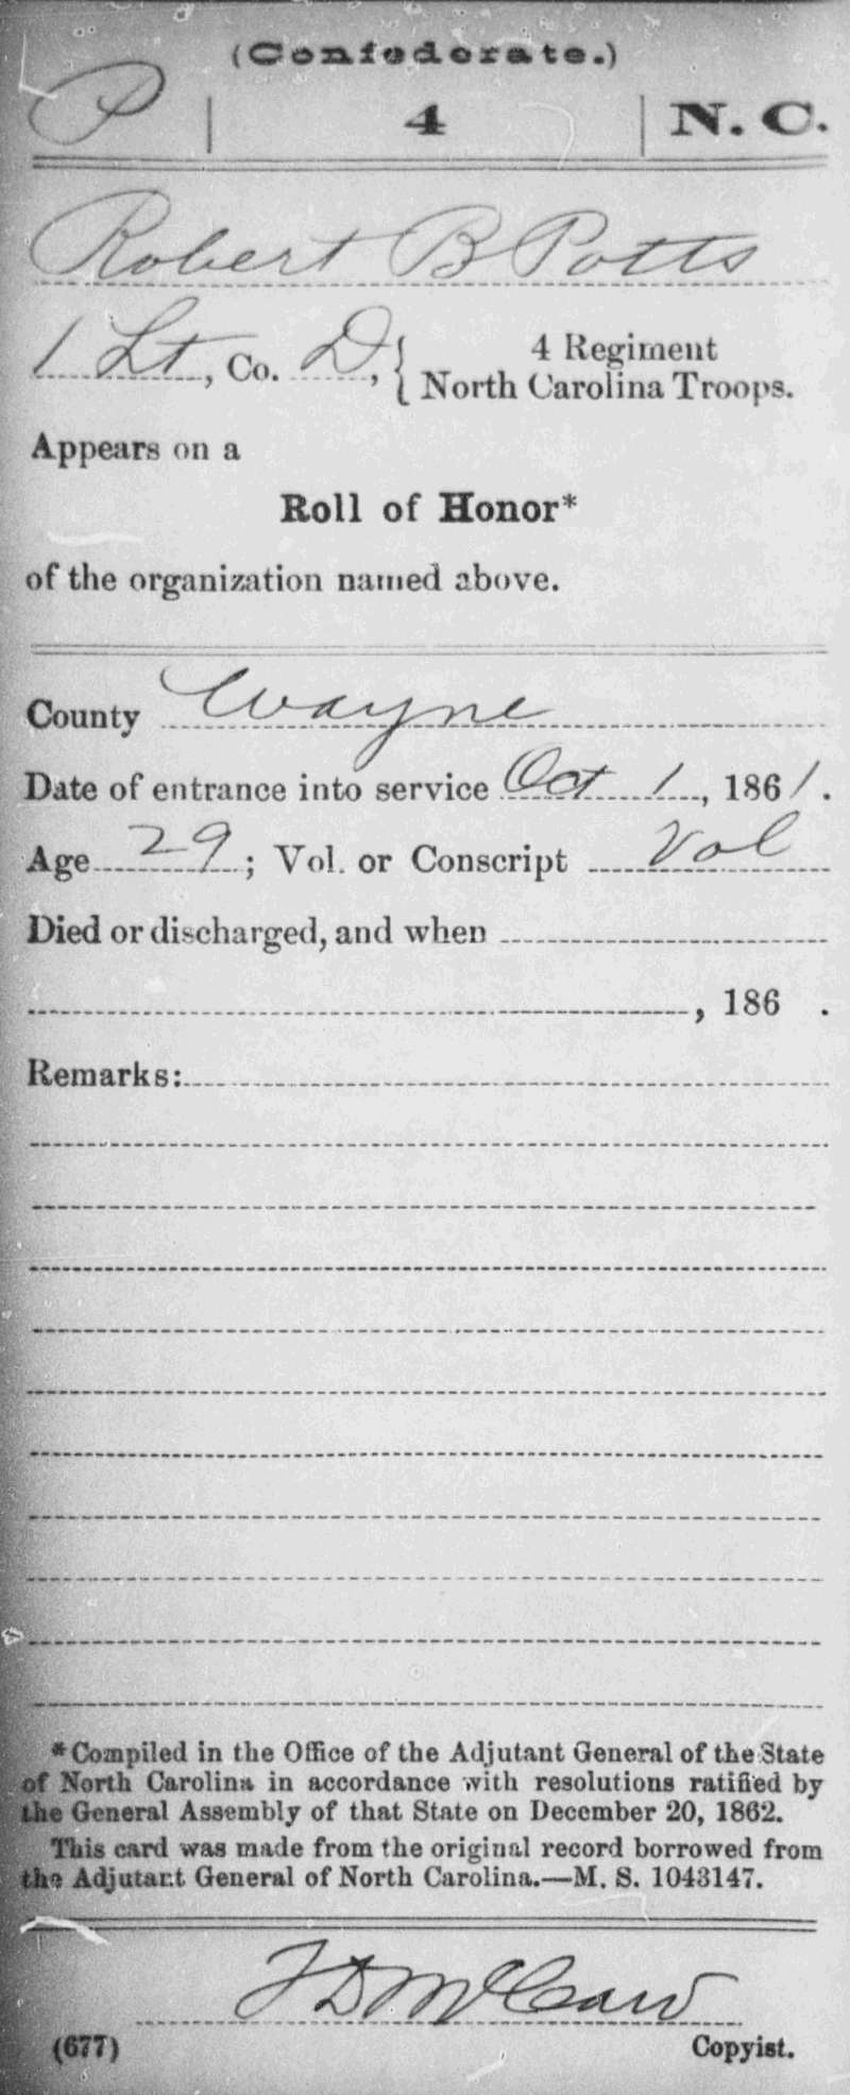 (Confederate.)
P | 4 | N. C.
Robert B Potts
1 Lt, Co. D, { 4 Regiment
North Carolina Troops.
Appears on a
Roll of Honor*
of the organization named above.
County Wayne
Date of entrance into service Oct 1, 1861.
Age 29; Vol. or Conscript Vol
Died or discharged, and when
, 186 .
Remarks:
*Compiled in the Office of the Adjutant General of the State
of North Carolina in accordance with resolutions ratified by
the General Assembly of that State on December 20, 1862.
This card was made from the original record borrowed from
the Adjutant General of North Carolina.—M. S. 1043147.
(677)
Copyist.